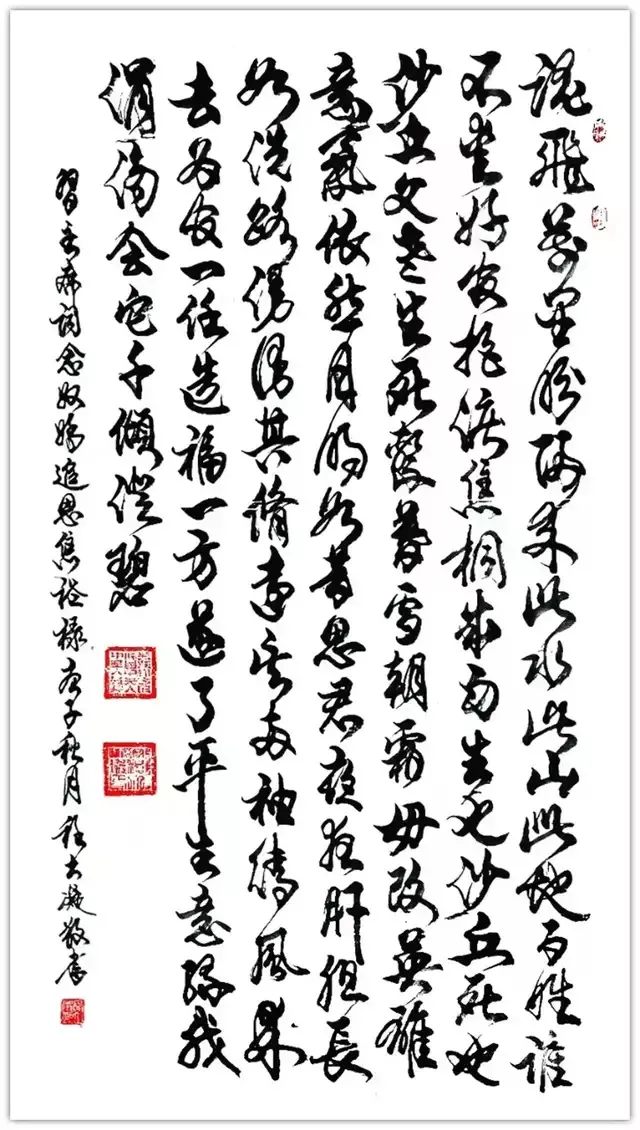 魂飛萬里盼歸来此水此山此地百姓誰
不愛好官把淚焦桐成雨生也沙丘死也
沙丘父老生死繫暮雪朝霜毋改英雄
意氣依然月明如昔思君夜夜肝胆長
如洗路漫漫其脩遠矣兩袖清風来
去為官一任造福一方遂了平生意綠我
涓滴會它千頃澄碧
習主席詞念奴嬌追思焦裕禄庚子秋月大凝敬書